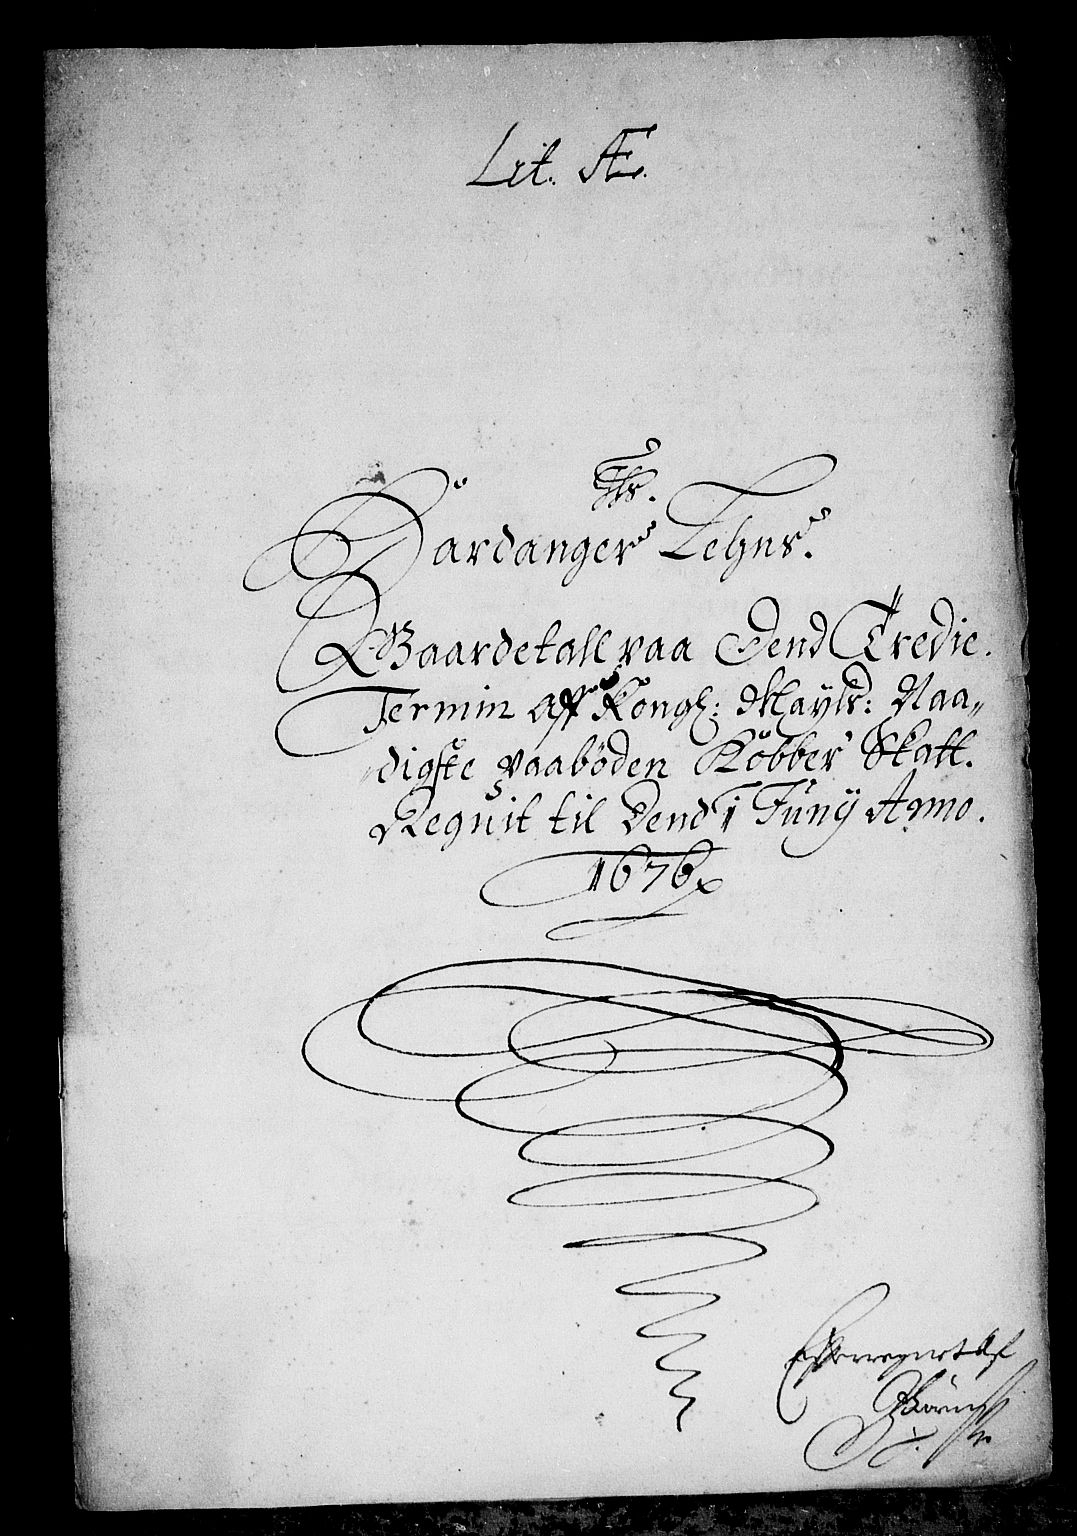 Lit. Æ.
Hardanger Lehns.
Qvaardetall paa Dend Tredie.
Termin Aff Kongl: Mayts: Naa„
digste paaböden Kobber Skatt.
Requit til Dend 1 Juny Anno.
1676
Efterregnet Af